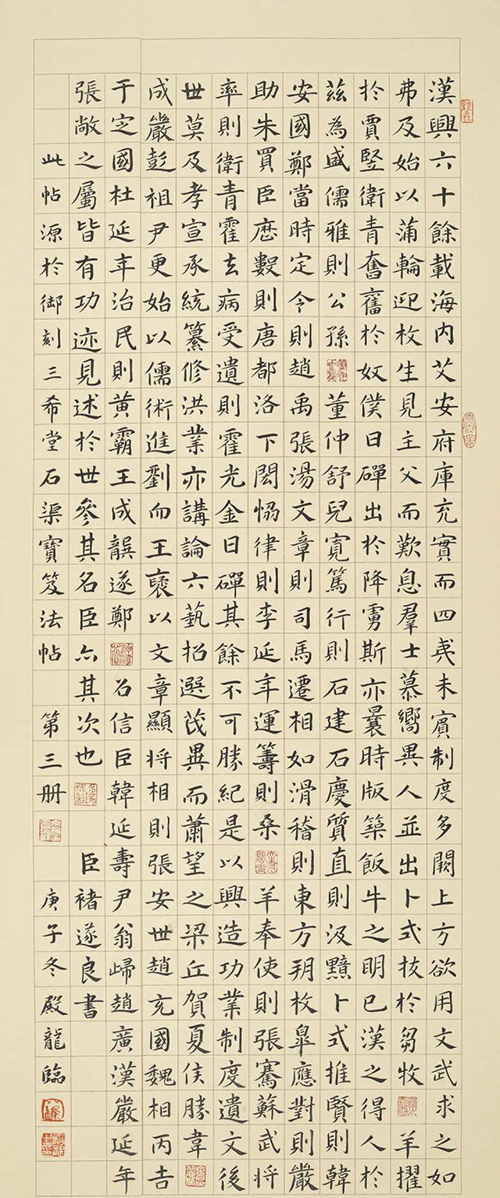 漢興六十餘載海内艾安府庫充實而四夷未賓制度多闕上方欲用文武求之如
弗及始以蒲輪迎枚生見主父而歎息羣士慕嚮異人並出卜式拔於芻牧羊擢
於賈豎衛青奮舊於奴僕日磾出於降虜斯亦曩時版築飯牛之明已漢之得人於
茲為盛儒雅則公孫董仲舒兒寬篤行則石建石慶質直則汲黯卜式推賢則韓
安國鄭當時定令則趙禹張湯文章則司馬遷相如滑稽則東方朔枚皋應對則嚴
助朱買臣厯數則唐都洛下閎恊律則李延年運籌則桑羊奉使則張騫蘇武將
率則衛青霍去病受遺則霍光金日磾其餘不可勝紀是以興造功業制度遺文後
世莫及孝宣承統纂修洪業亦講論六藝招選茂異而蕭望之梁丘賀夏侯勝韋
成嚴彭祖尹更始以儒術進劉向王襃以文章顯將相則張安世趙充國魏相丙吉
于定國杜延年治民則黃霸王成龔遂鄭召信臣韓延壽尹翁歸趙廣漢嚴延年
張敞之屬皆有功迹見述於世參其名臣亦其次也 臣褚遂良書
此帖源於御刻三希堂石渠寶笈法帖 第三册 庚子冬殿龍臨